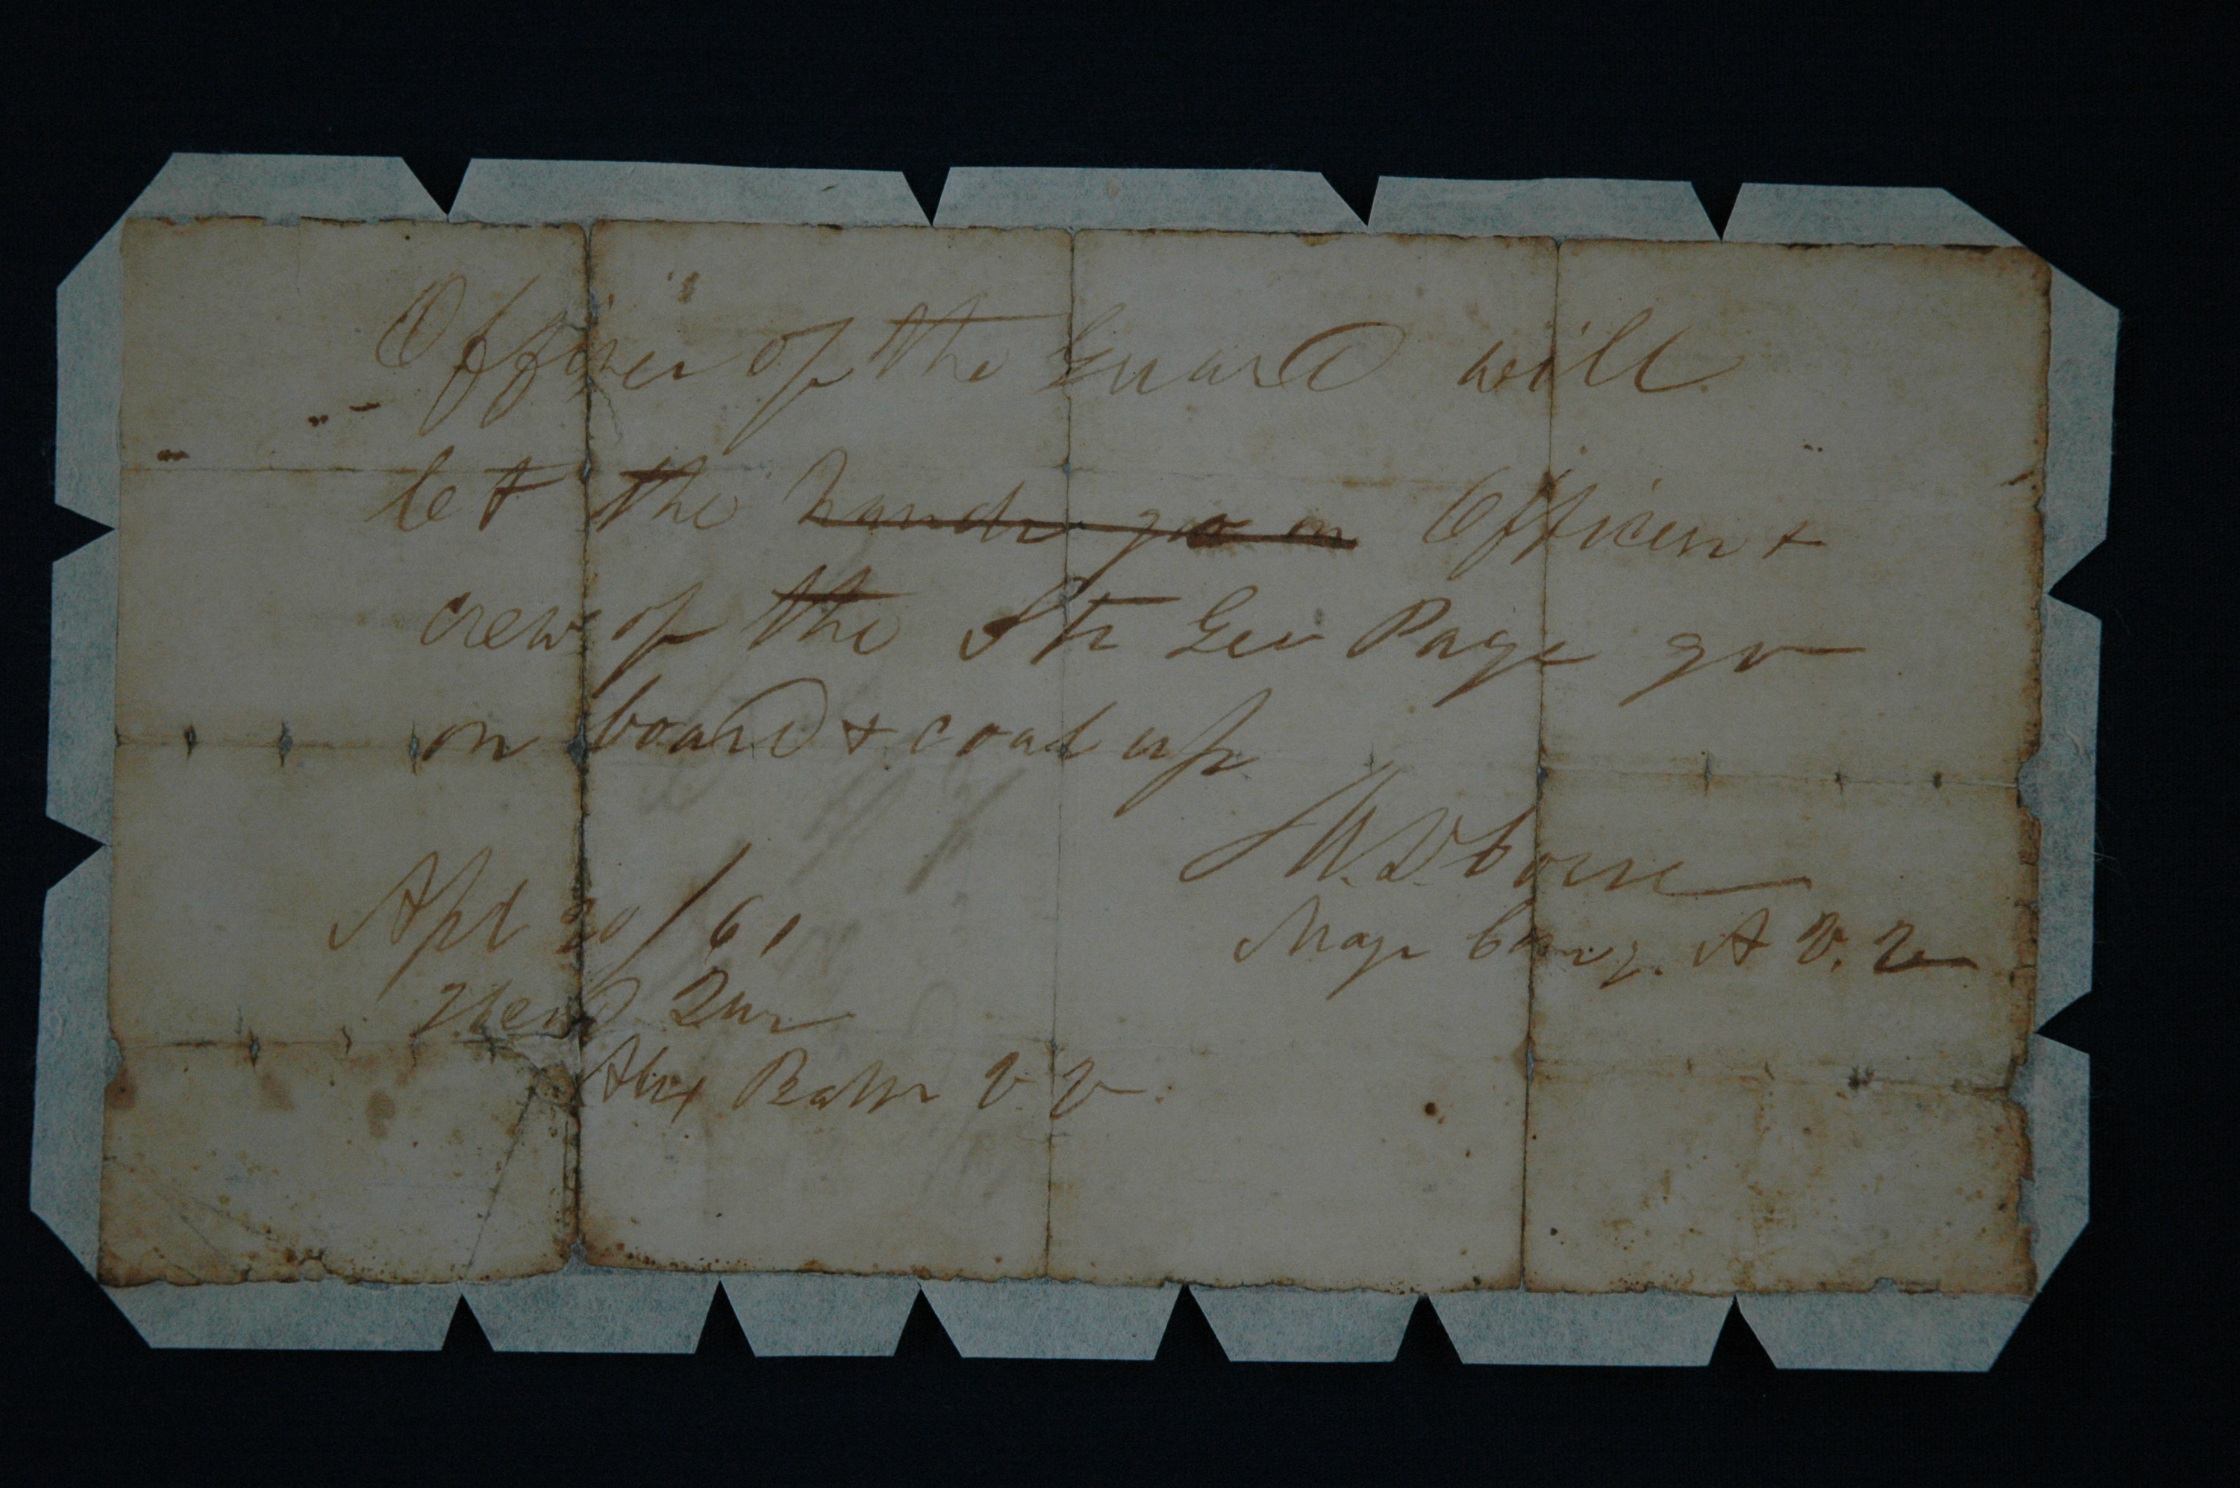 Officer of the Guard will
let the hands go on Officers +
crew of the Str Geo Page go
on board + coal up
M. D. Corse
Apl 20/61
Maj Comg. A V. V
Head Qur
Alex Batln V. V.